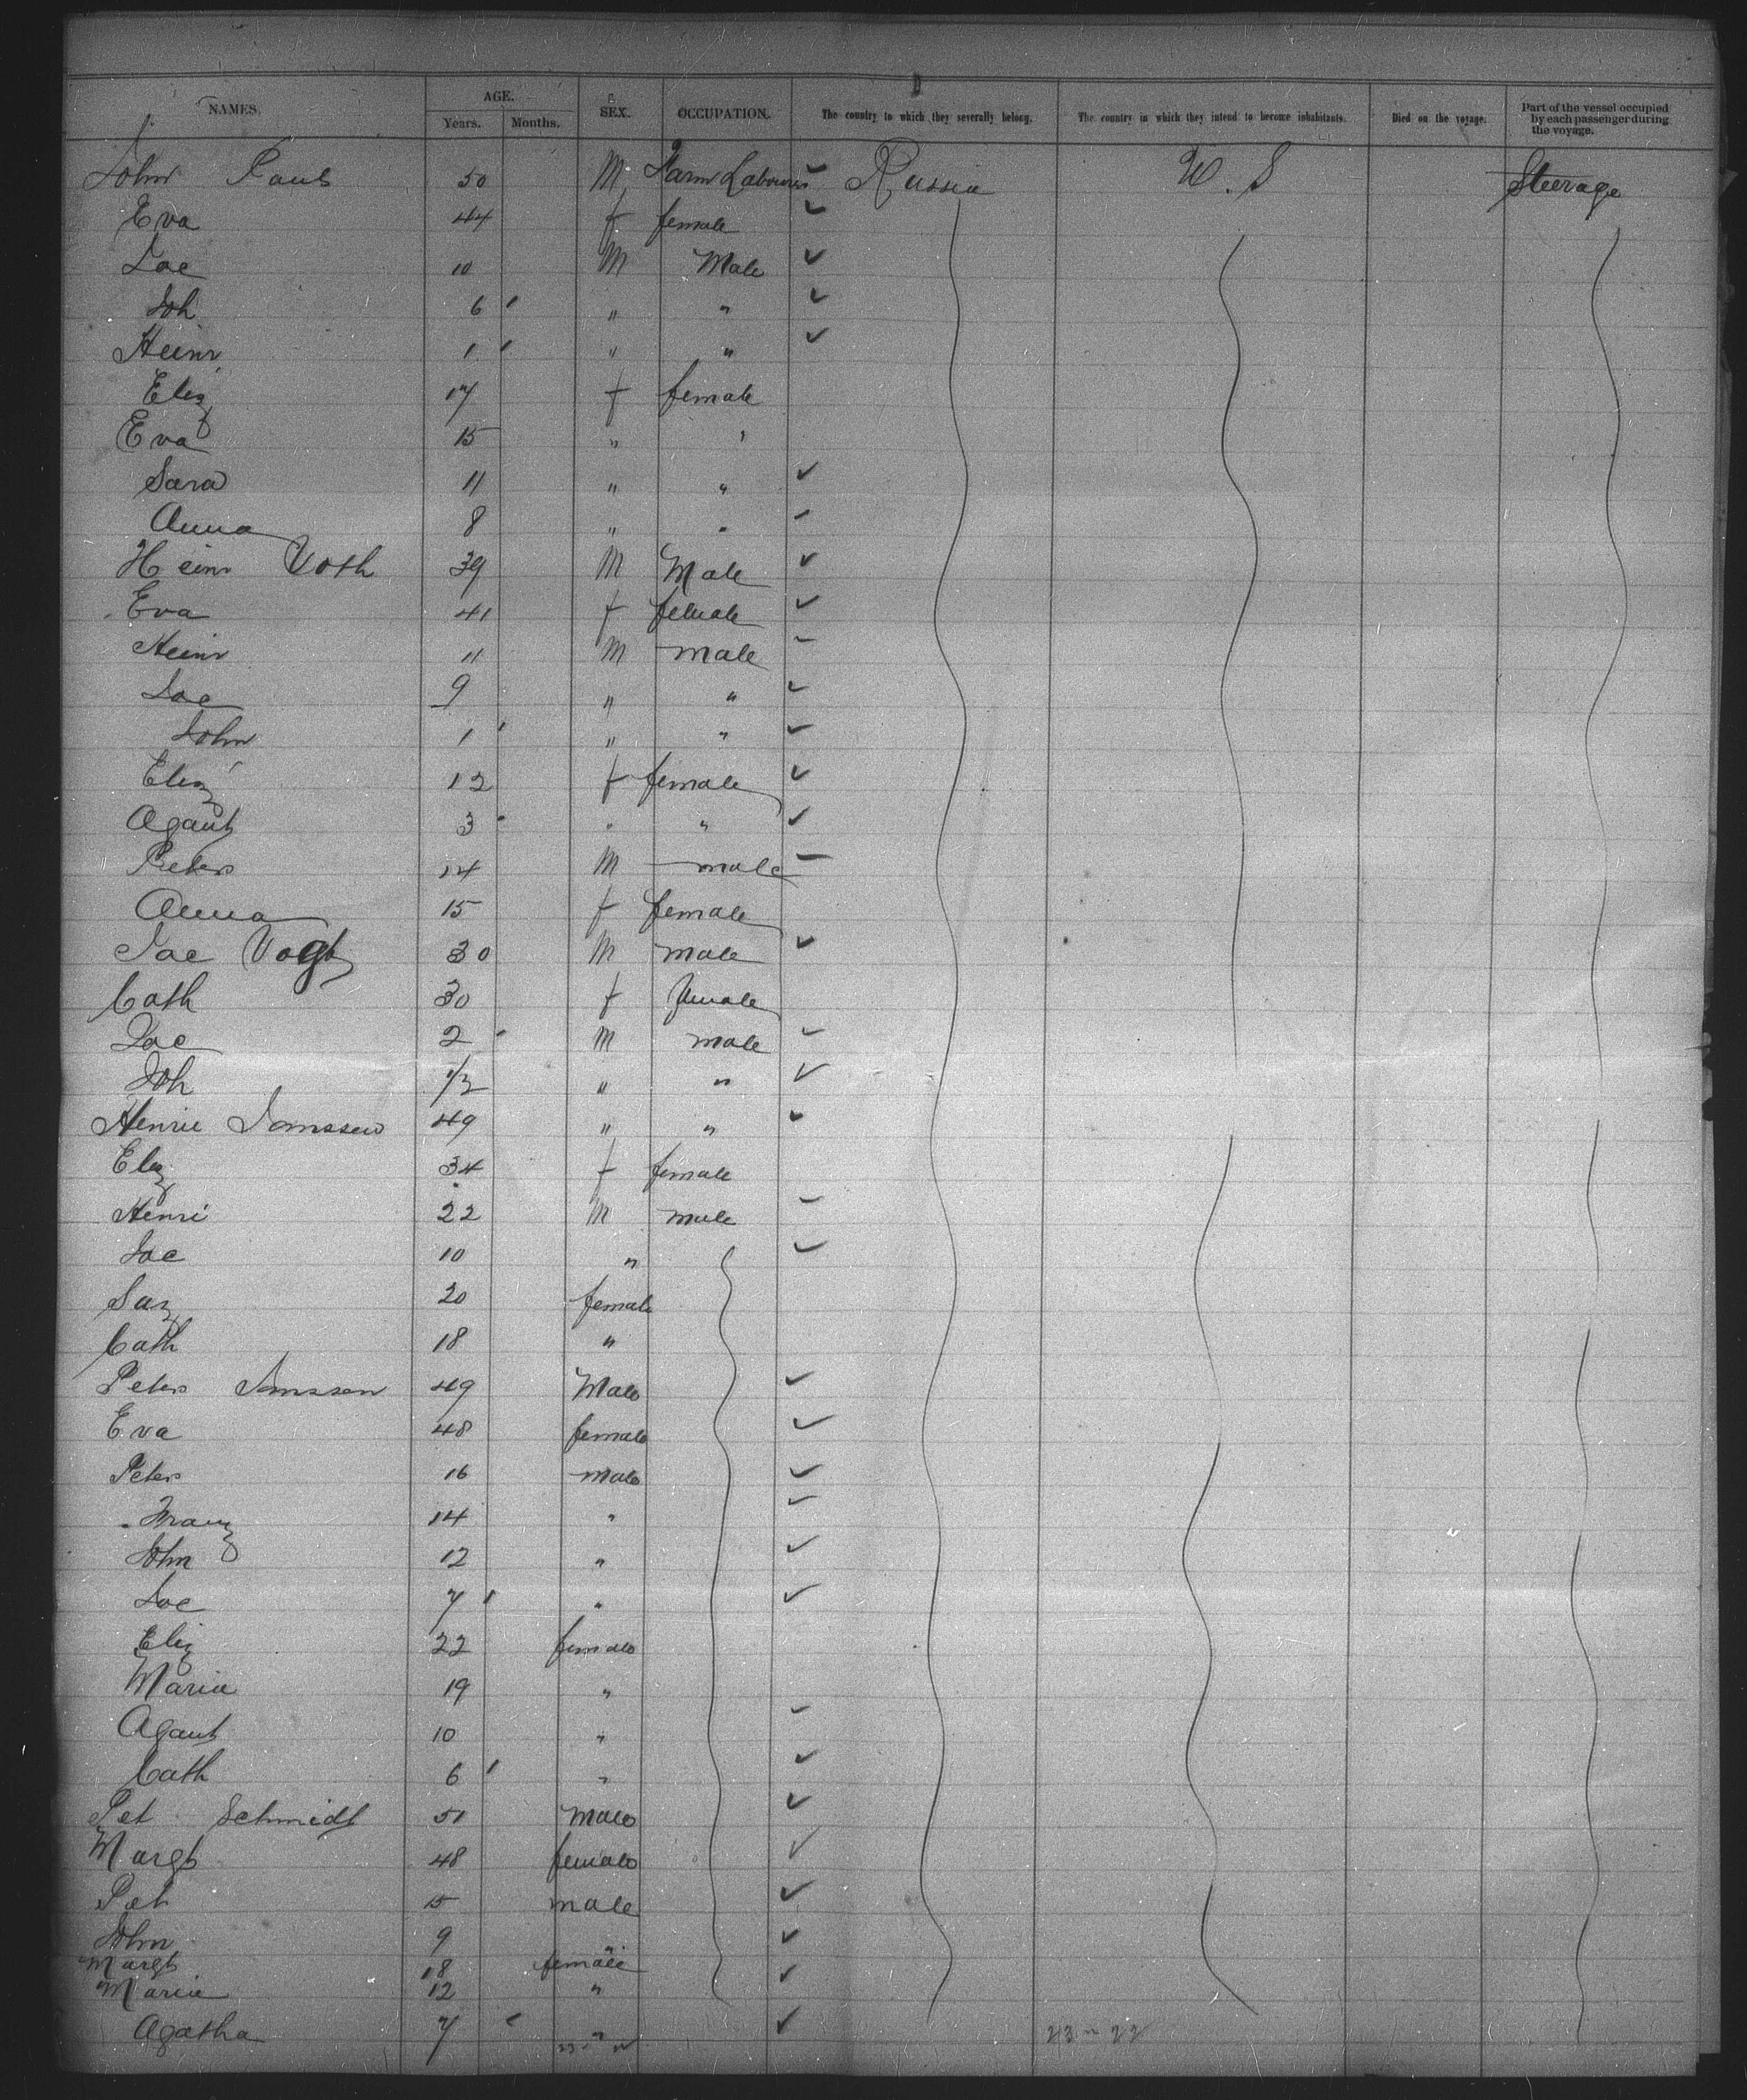 NAMES. AGE. SEX. OCCUPATION. The country to which they severally belong. The country in which they intend to become inhabitants. Died on the voyage. Part of the vessel occupied by each passenger during the voyage.
Years. Months.
John Pauls 50 M Farm Labourer ✓ Russia U.S Steerage
Eva 44 f female ✓
Jac 10 M Male ✓
Joh 6 ' " " ✓
Heinr 1 ' " " ✓
Eliz 17 f female
Eva 15 " "
Sara 11 " " ✓
Anna 8 " " ✓
Heinr Voth 39 M Male ✓
Eva 41 f female ✓
Heinr 11 M male ✓
Jac 9 " " ✓
John 1 ' " " ✓
Eliz 12 f female ✓
Agant 3 ' " " ✓
Peter 14 M male ✓
Anna 15 f female
Jac Vogt 30 M male ✓
Cath 30 f female
Jac 2 ' M male ✓
Joh 1/2 " " ✓
Henrie Janssen 49 " " ✓
Eliz 34 f female
Henri 22 M male ✓
Jac 10 " ✓
20 female
Cath 18 "
Peter Janssen 49 Male ✓
Eva 48 female ✓
Peter 16 male ✓
Franz 14 " ✓
John 12 " ✓
Jac 7 ' " ✓
Eliz 22 female
Maria 19 "
Agant 10 " ✓
Cath 6 ' " ✓
Pet Schmidt 51 male ✓
Margt 48 female ✓
Pet 15 male ✓
John 9 " ✓
Margt 18 female ✓
Maria 12 "
Agatha 7 ' " ✓
23 - 22